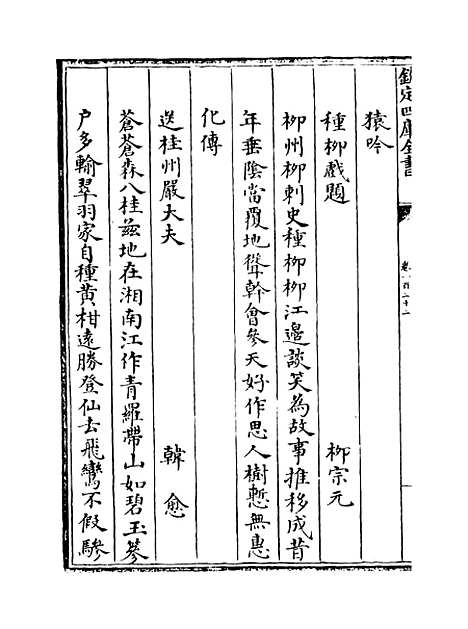 欽定四庫全書
猿吟
種柳戲題　柳宗元
柳州柳刺史種柳柳江邊談笑為故事推移成昔
年垂陰當覆地聳幹會參天好作思人樹慙無惠
化傳
送桂州嚴大夫　韓愈
蒼蒼森八桂茲地在湘南江作青羅帶山如碧玉篸
户多輸翠羽家自種黄柑遠勝登仙去飛鸞不假驂